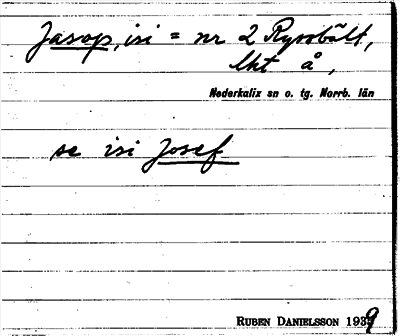 Jasop, isi = nr 2 Ryssbält,
lht å,
Nederkalix sn o. tg. Norrb. län
se isi Josef
RUBEN DANIELSSON 1939